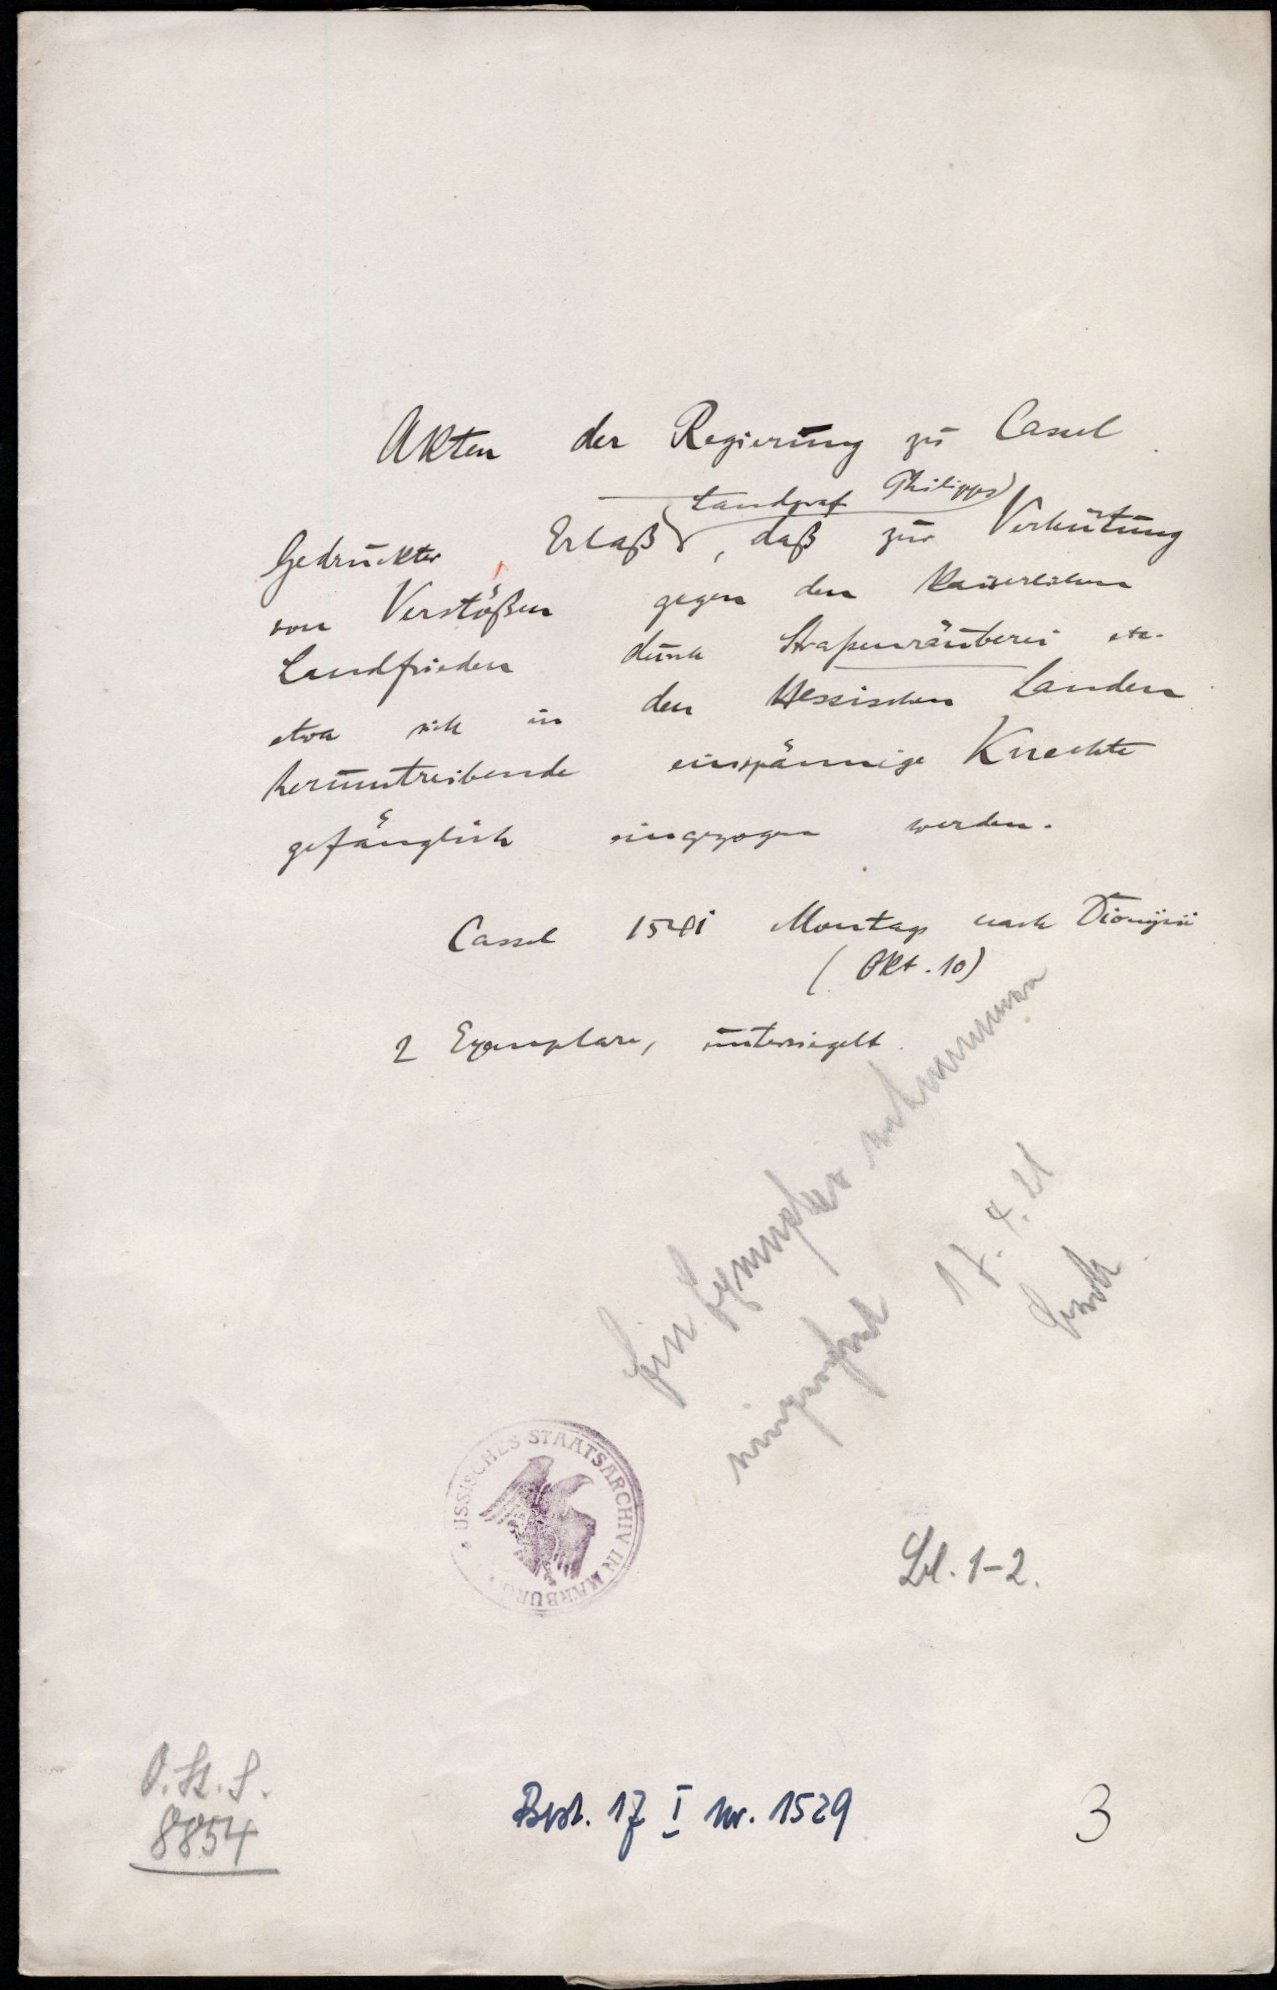 Akten der Regierung zu Cassel
Landgraf Philipps
Gedruckter Erlaß, daß zur Verhütung
von Verstößen gegen den Kaiserlichen
Landfrieden durch Straßenräuberei etc.
etwa sich in den Hessischen Landen
herumtreibende einspännige Knechte
gefänglich eingezogen werden.
Cassel 1541 Montags nach Dionysii
(Okt. 10)
2 Exemplare, untersiegelt.
Ein Exemplar
17. 4. 21
USSISCHES STAATSARCHIV IN MARBURG
Bl. 1-2.
O. St. S.
8854
Best. 17 I Nr. 1529
3